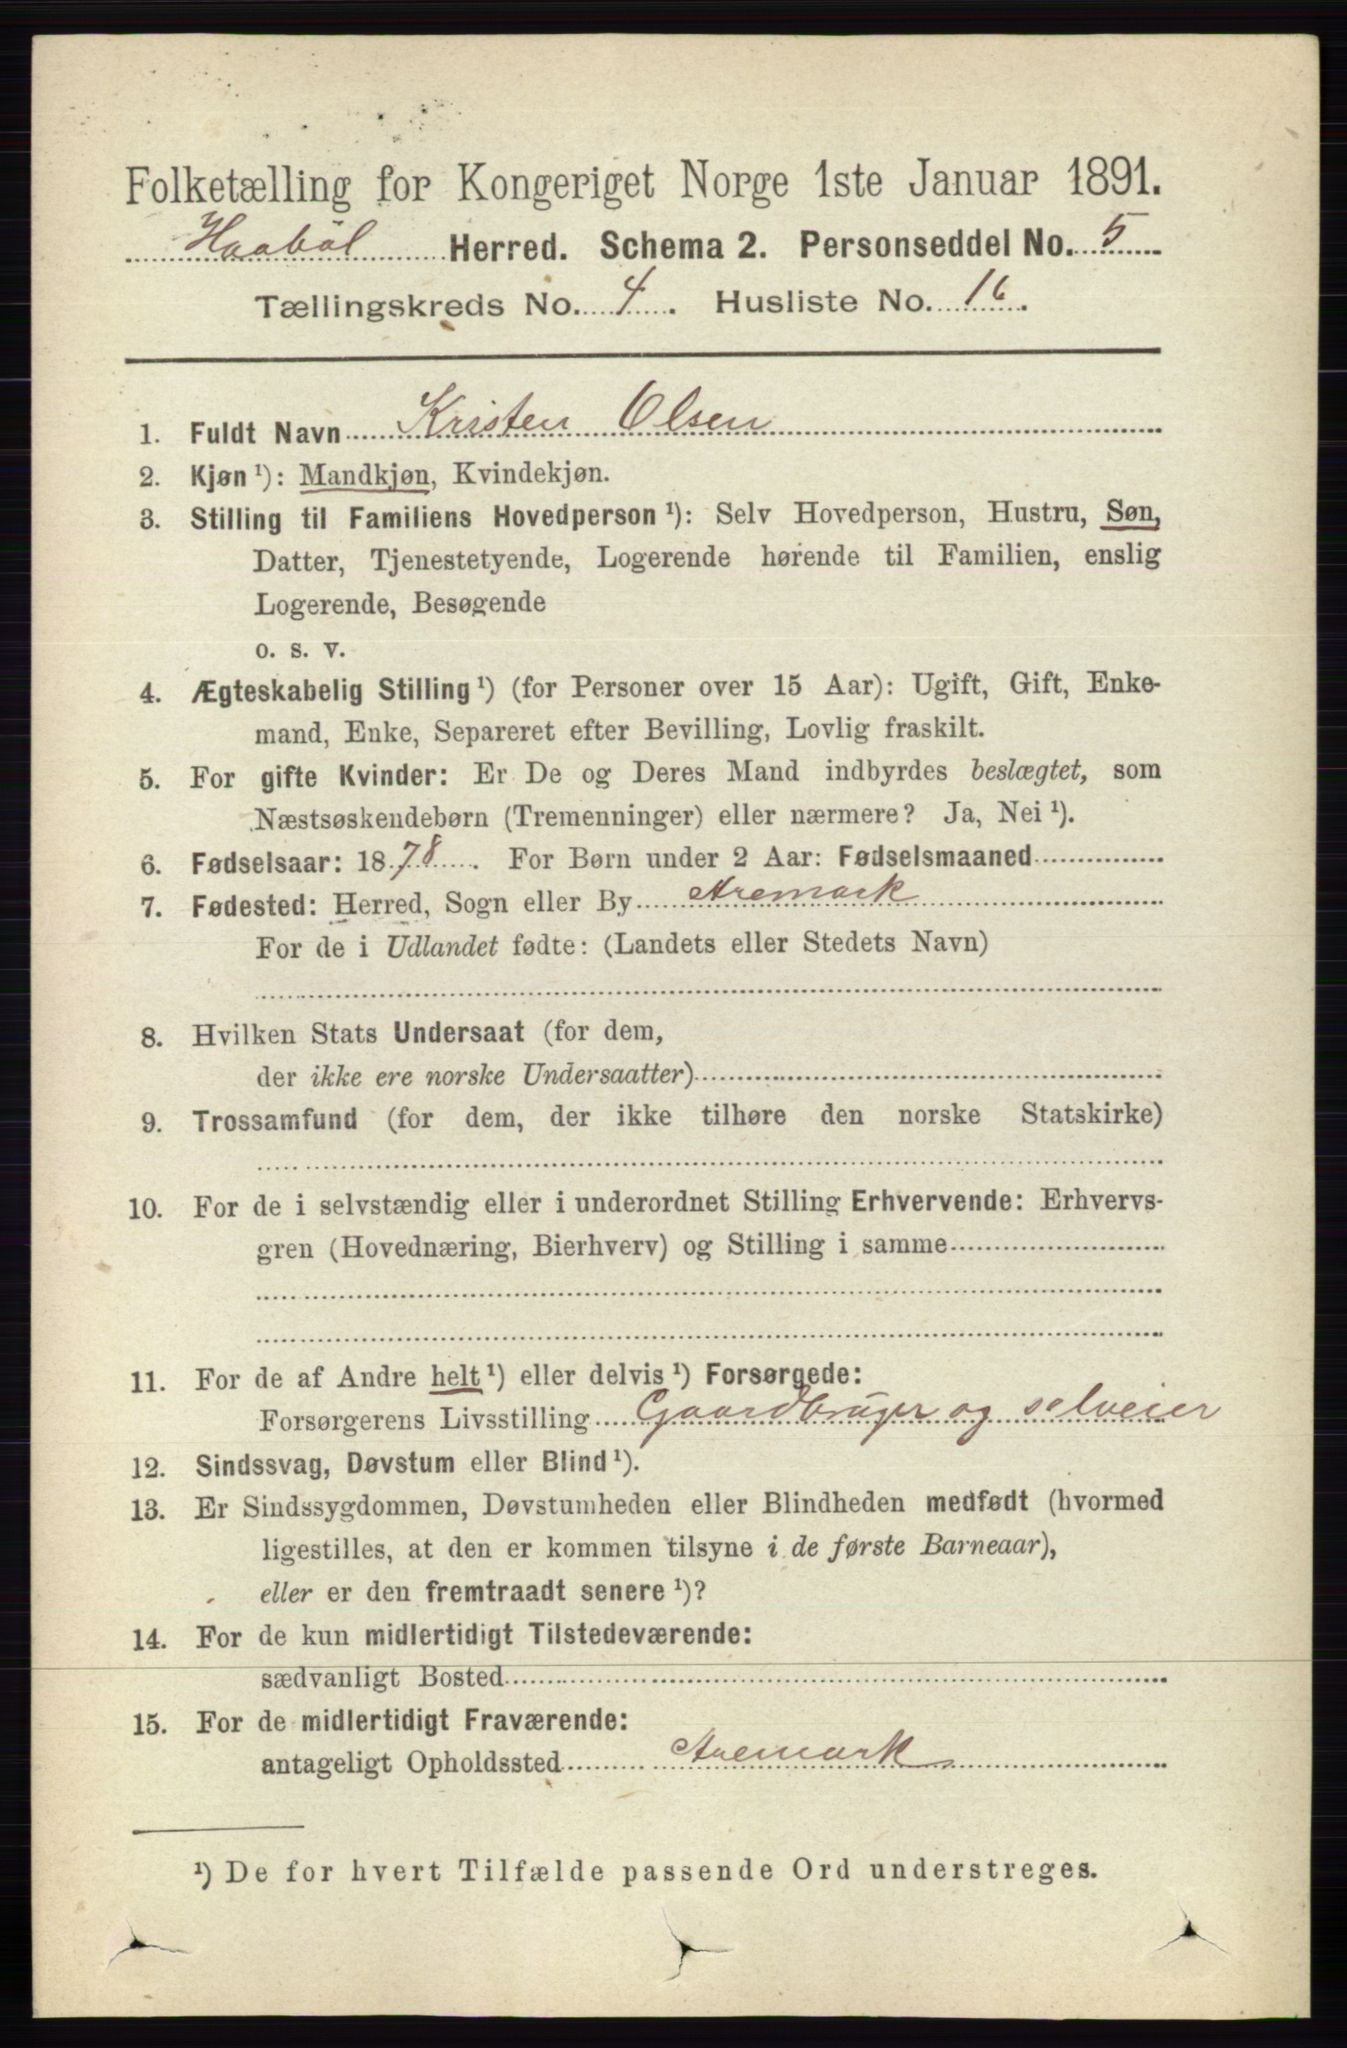 Folketælling for Kongeriget Norge 1ste Januar 1891.
Haabøl Herred. Schema 2. Personseddel No. 5
Tællingskreds No. 4. Husliste No. 16.
1. Fuldt Navn Kristen Olsen
2. Kjøn ¹): Mandkjøn, Kvindekjøn.
3. Stilling til Familiens Hovedperson ¹): Selv Hovedperson, Hustru, Søn,
Datter, Tjenestetyende, Logerende hørende til Familien, enslig
Logerende, Besøgende
o. s. v.
4. Ægteskabelig Stilling ¹) (for Personer over 15 Aar): Ugift, Gift, Enke-
mand, Enke, Separeret efter Bevilling, Lovlig fraskilt.
5. For gifte Kvinder: Er De og Deres Mand indbyrdes beslægtet, som
Næstsøskendebørn (Tremenninger) eller nærmere? Ja, Nei ¹).
6. Fødselsaar: 1878. For Børn under 2 Aar: Fødselsmaaned
7. Fødested: Herred, Sogn eller By Aremark
For de i Udlandet fødte: (Landets eller Stedets Navn)
8. Hvilken Stats Undersaat (for dem,
der ikke ere norske Undersaatter)
9. Trossamfund (for dem, der ikke tilhøre den norske Statskirke)
10. For de i selvstændig eller i underordnet Stilling Erhvervende: Erhvervs-
gren (Hovednæring, Bierhverv) og Stilling i samme
11. For de af Andre helt ¹) eller delvis ¹) Forsørgede:
Forsørgerens Livsstilling Gaardbruger og selveier
12. Sindssvag, Døvstum eller Blind ¹).
13. Er Sindssygdommen, Døvstumheden eller Blindheden medfødt (hvormed
ligestilles, at den er kommen tilsyne i de første Barneaar),
eller er den fremtraadt senere ¹)?
14. For de kun midlertidigt Tilstedeværende:
sædvanligt Bosted
15. For de midlertidigt Fraværende:
antageligt Opholdssted Aremark
¹) De for hvert Tilfælde passende Ord understreges.